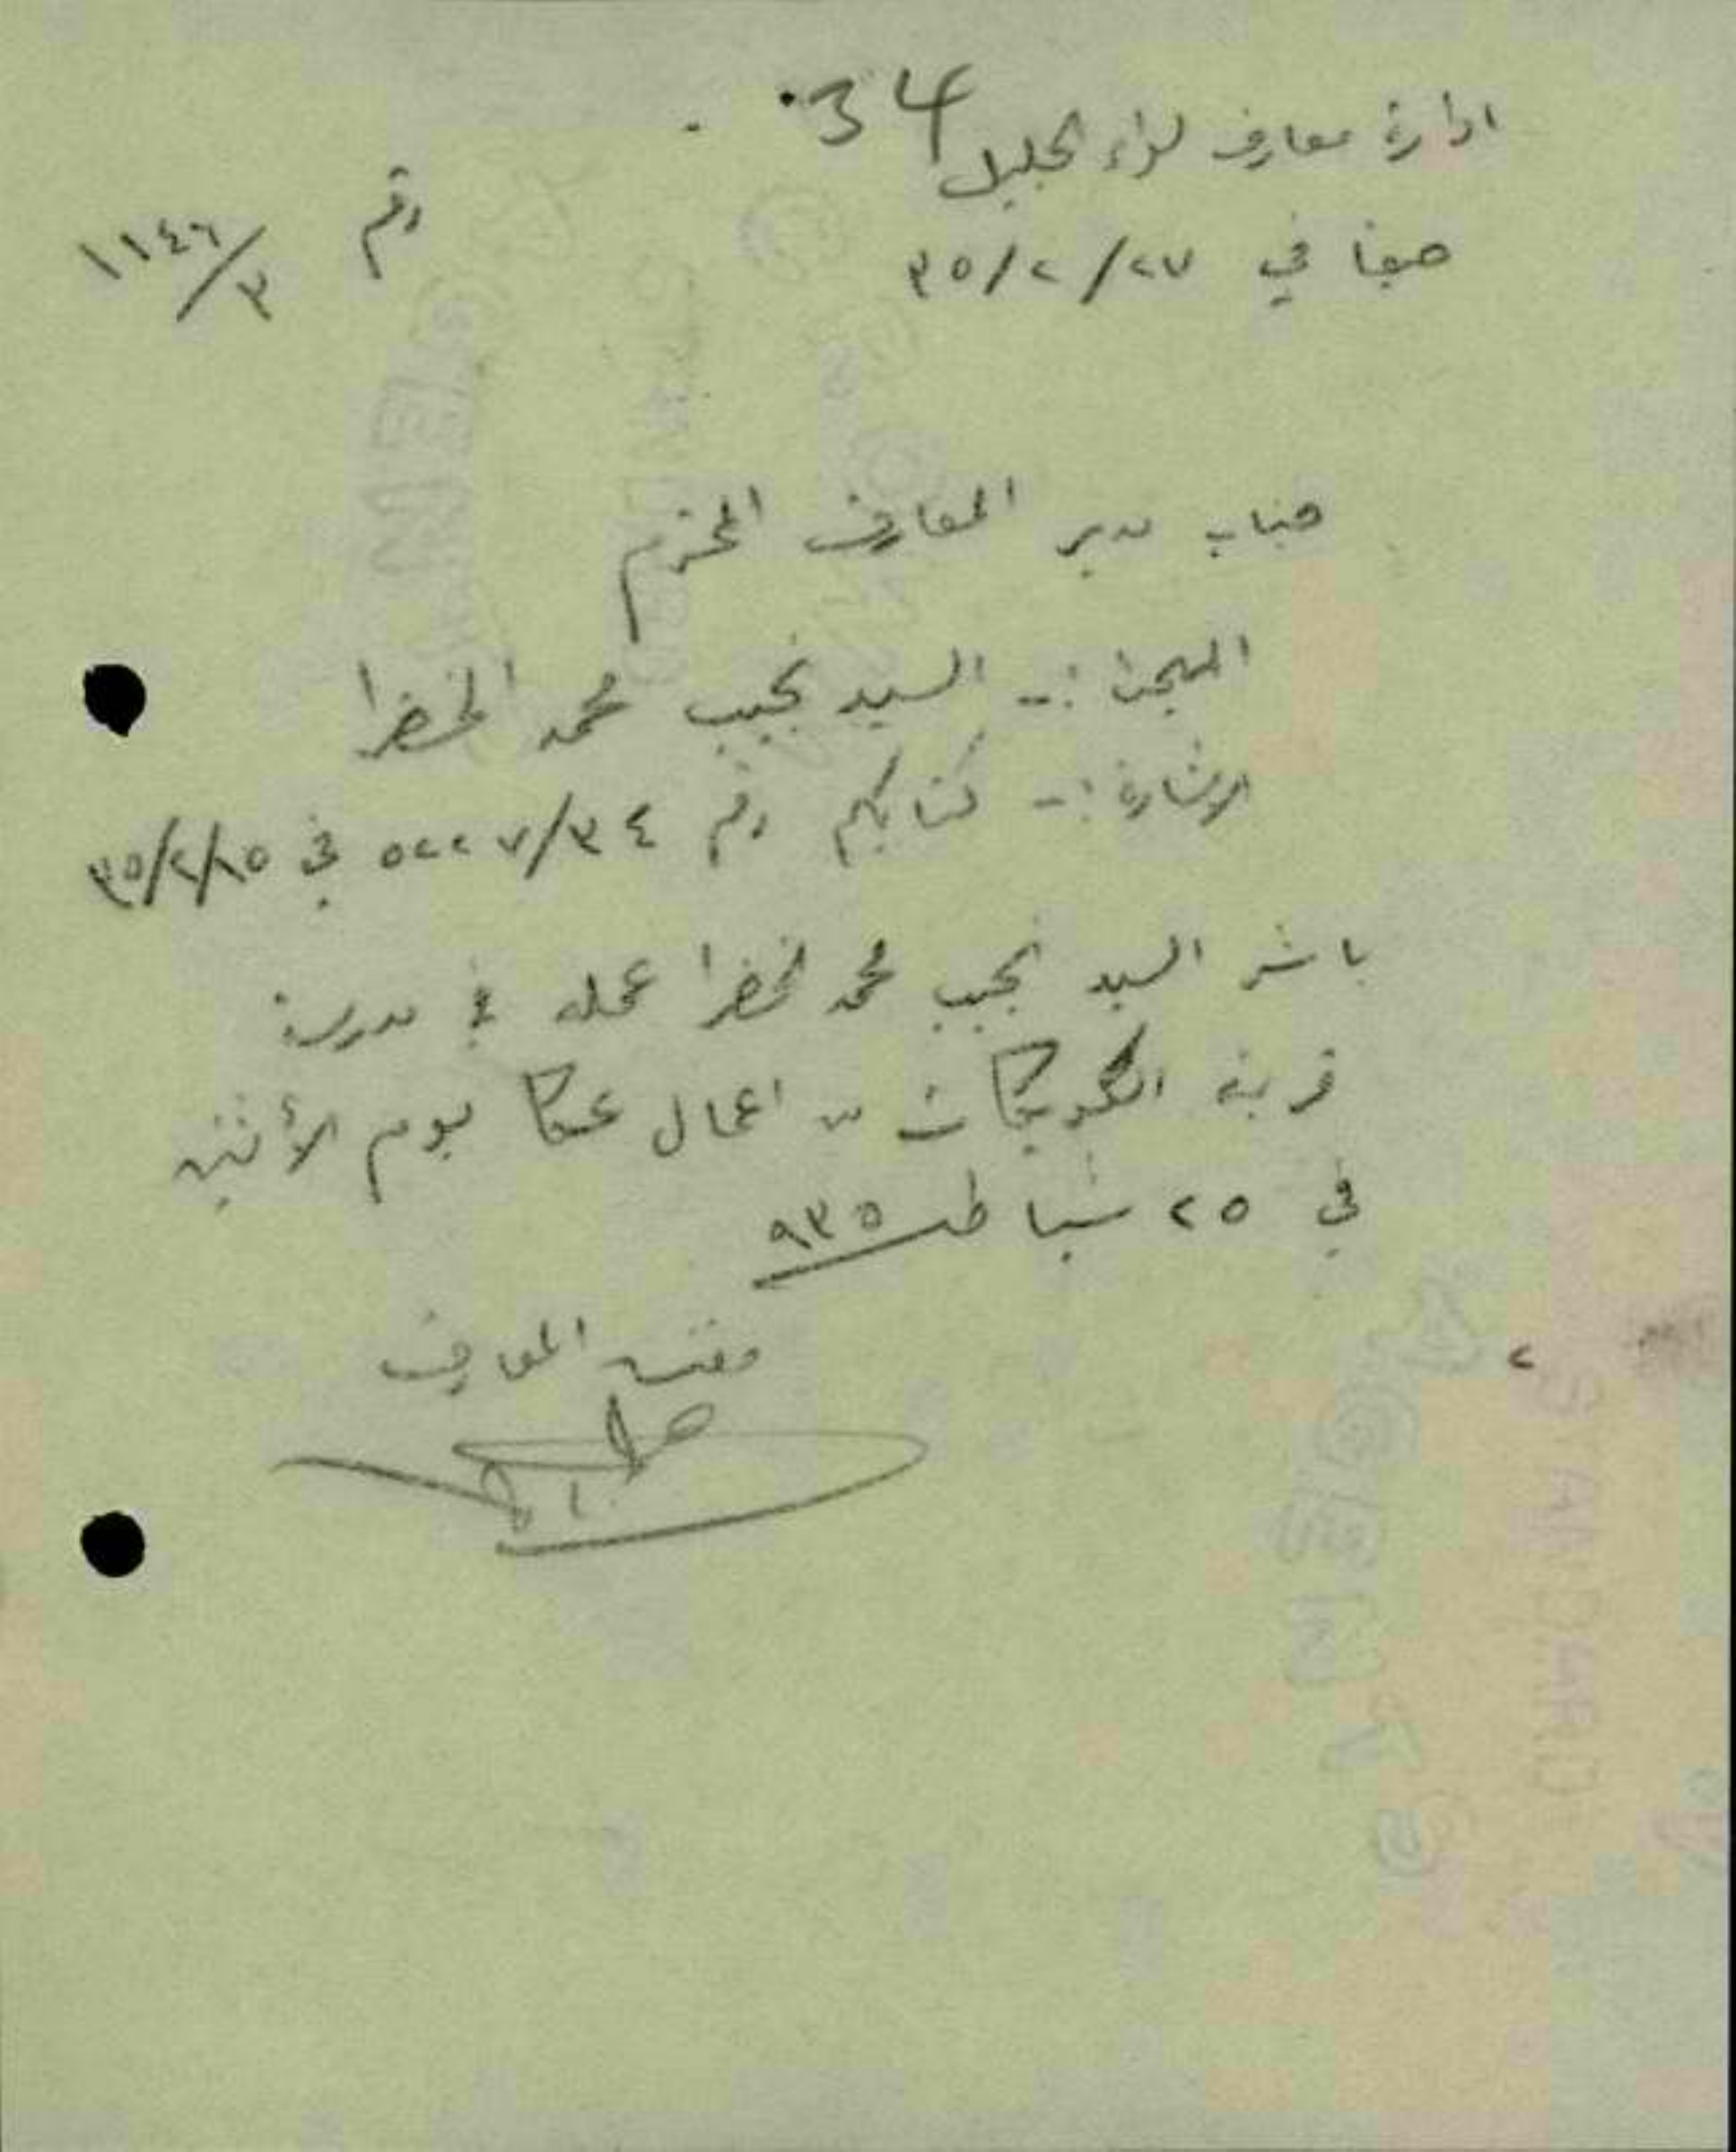 34
ادارة معارف لواء الجليل
رقم ١١٤٦/٣
حيفا في ٢٧/٢/٣٥
جناب مدير المعارف المحترم
المبحث :- السيد نجيب محمد الخضرا
الاشارة :- كتابكم رقم ٥٢٢٧/٣٤ في ٣٥/٢/١٥
باشر السيد نجيب محمد الخضرا عمله في مدرسة
قرية الكويكات من اعمال عكا يوم الأثنين
في ٢٥ شباط ٩٣٥
مفتش المعارف